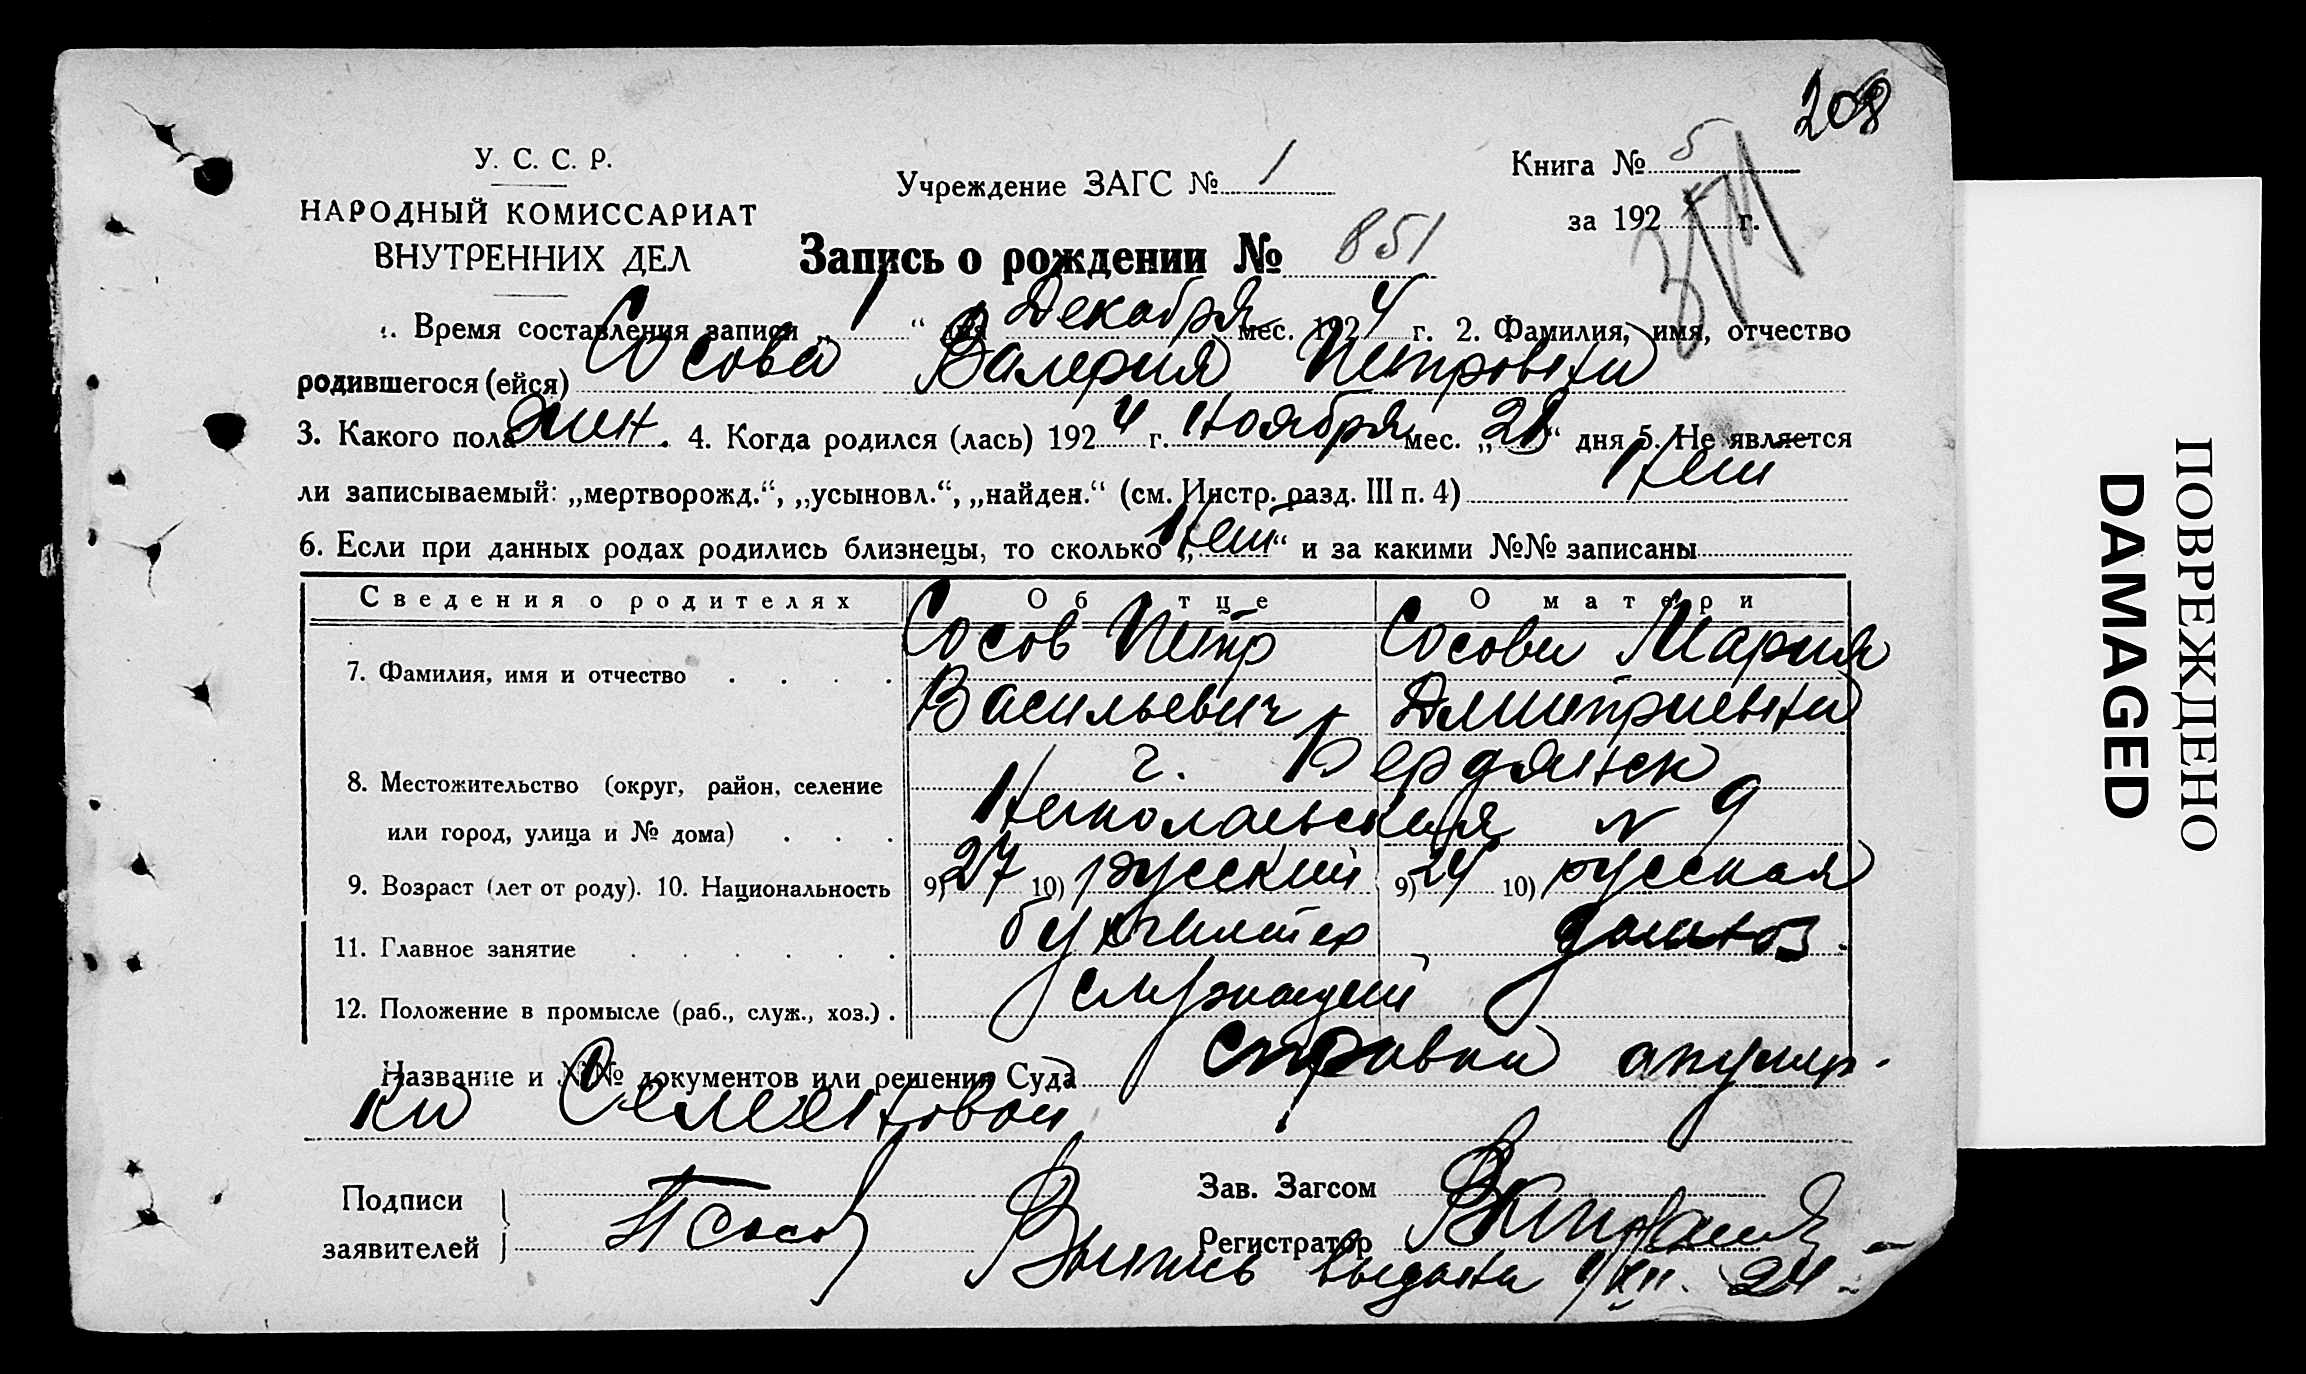 208
У. С. С. Р.
НАРОДНЫЙ КОМИССАРИАТ
ВНУТРЕННИХ ДЕЛ
Учреждение ЗАГС № 1
Книга № 5
за 192 4 г.
Запись о рождении № 851
1. Время составления записи „ 1 “ дня Декабря мес. 192 4 г. 2. Фамилия, имя, отчество
родившегося (ейся) Сосова Валерия Петровна
3. Какого пола жен. 4. Когда родился (лась) 192 4 г. Ноября мес. „ 28 “ дня 5. Не является
ли записываемый: „мертворожд.“, „усыновл.“, „найден.“ (см. Инстр. разд. III п. 4) Нет
6. Если при данных родах родились близнецы, то сколько „ Нет “ и за какими №№ записаны
Сведения о родителях Об отце О матери
7. Фамилия, имя и отчество Сосов Петр Сосова Мария
Васильевич Дмитриевна
8. Местожительство (округ, район, селение г. Бердянск
или город, улица и № дома) Николаевская N 9
9. Возраст (лет от роду). 10. Национальность 9) 27 10) русский 9) 24 10) русская
11. Главное занятие бухгалтер домхоз.
12. Положение в промысле (раб., служ., хоз.) служащий
Название и №№ документов или решения Суда Справка акушер-
ки Семеновой
Подписи заявителей П Сосов
Зав. Загсом
Регистратор
Выпись выдана 1/XII. 24
ПОВРЕЖДЕНО
DAMAGED